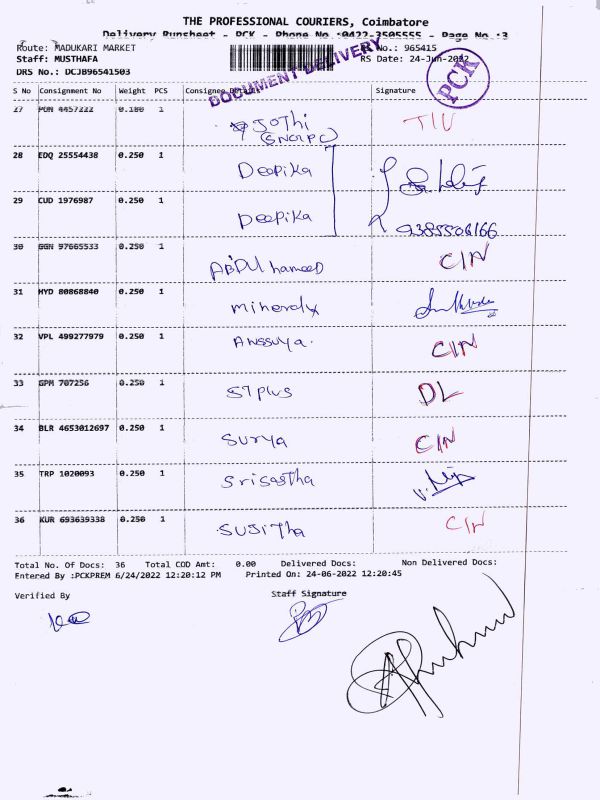 THE PROFESSIONAL COURIERS, Coimbatore
Delivery Runsheet - PCK - Phone No :0422-3505555 - Page No :3
Route: MADUKARI MARKET
No.: 965415
Staff: MUSTHAFA
RS Date: 24-Jun-2022
DRS No.: DCJB96541503
DOCUMENT DELIVERY
PCK
S No Consignment No Weight PCS Consignee Details Signature
27 PON 4457222 0.180 1 JOThi TIU
28 EDQ 25554438 0.250 1 Deepika
29 CUD 1976987 0.250 1 Deepika 9385506166
30 GGN 97665533 0.250 1 ABDUl hameeD CIN
31 HYD 80868840 0.250 1
32 VPL 499277979 0.250 1 ANSSUya. CIN
33 GPM 707256 0.250 1 ST plus DL
34 BLR 4653012697 0.250 1 Surya CIN
35 TRP 1020093 0.250 1 Srisastha
36 KUR 693639338 0.250 1 SUJiTha CIN
Total No. Of Docs: 36 Total COD Amt: 0.00 Delivered Docs: Non Delivered Docs:
Entered By :PCKPREM 6/24/2022 12:20:12 PM Printed On: 24-06-2022 12:20:45
Verified By Staff Signature